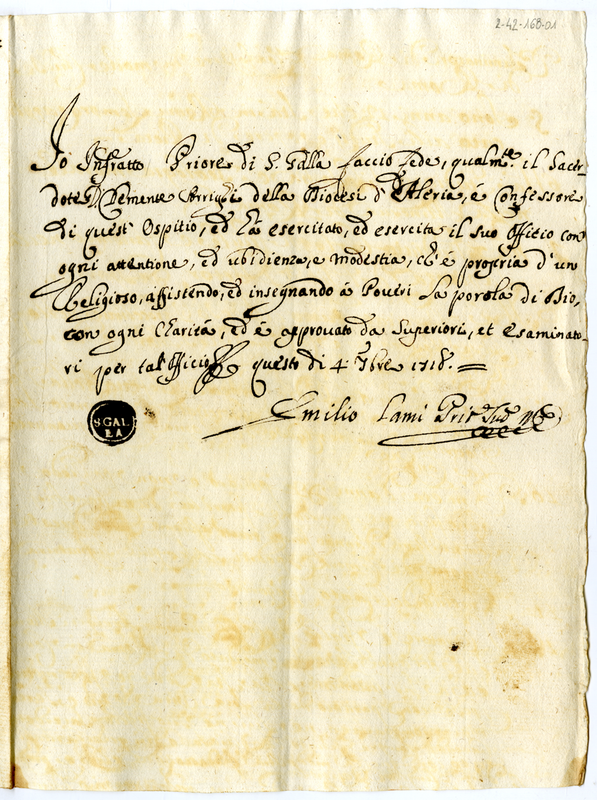 2-42-168-01
Io Infratto Priore di S. Galla faccio fede, qualmte. il Sacer-
dote D. Clemente Arrighi della Diocesi d'Aleria, é Confessore
di quest' Ospitio, ed há esercitato, ed esercita il suo Offitio con
ogni attentione, ed ubidienza, e modestia, ch' é propria d'un
Religioso, assistendo, ed insegnando á Poveri la parola di Dio,
con ogni Charitá, ed é approvato da Superiori, et esaminato-
ri per tal' Officio questo di 4 7bre 1718.
Emilio Lami Prire Sudo
S GAL
LA